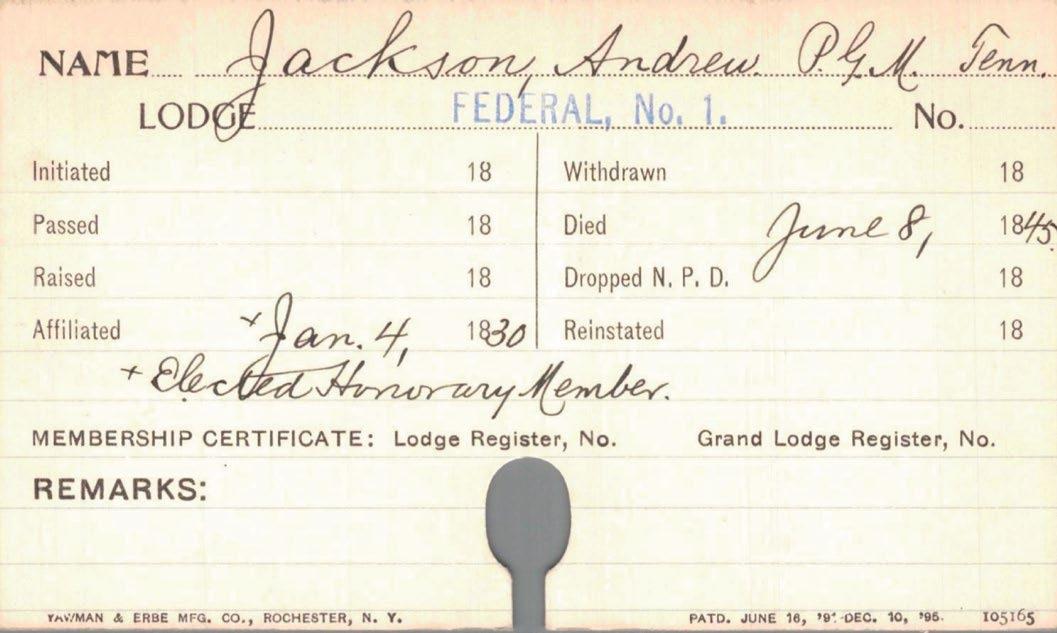 NAME Jackson, Andrew. P.G.M. Tenn.
LODGE FEDERAL, No. 1. No.
Initiated 18 Withdrawn 18
Passed 18 Died June 8, 1845
Raised 18 Dropped N. P. D. 18
Affiliated + Jan. 4, 1830 Reinstated 18
+ Elected Honorary Member.
MEMBERSHIP CERTIFICATE: Lodge Register, No. Grand Lodge Register, No.
REMARKS:
YAWMAN & ERBE MFG. CO., ROCHESTER, N. Y. PATD. JUNE 16, '91-DEC. 10, '95. 105165